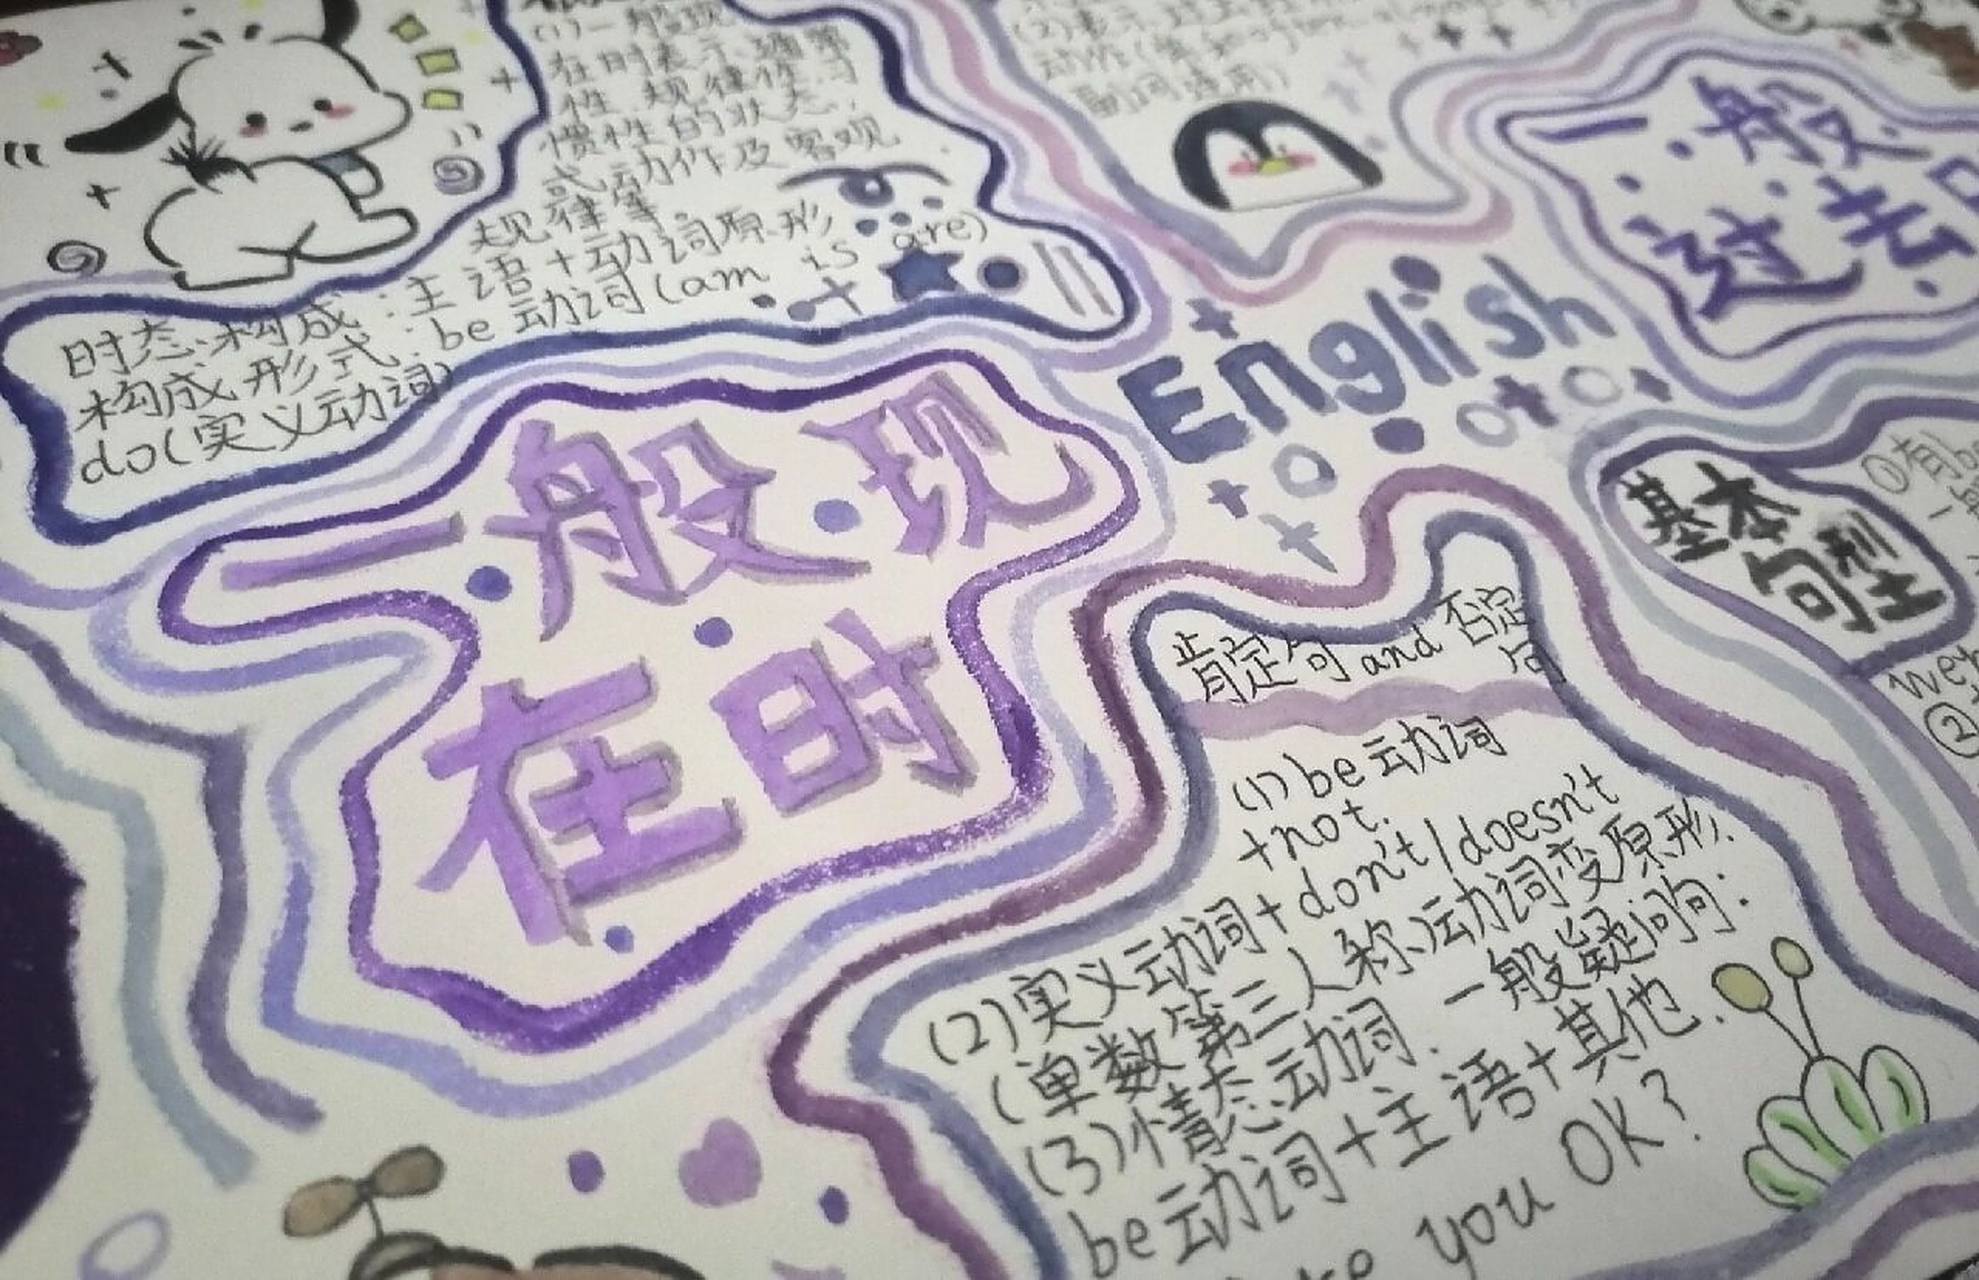 (1)一般现
在时表示经常
性、规律性、习
惯性的状态,
或动作及客观
规律等.
时态构成:主语+动词原形
构成形式:be动词(am is are)
do(实义动词)
(2)表示过去
动作(
副词连用)
一般
过去
English
一般现
在时
基本
句型
①有be
②
肯定句and否定
句
(1)be动词
+not.
(2)实义动词+don't/doesn't
(单数第三人称)动词变原形.
(3)情态动词.一般疑问句:
be动词+主语+其他.
you OK?